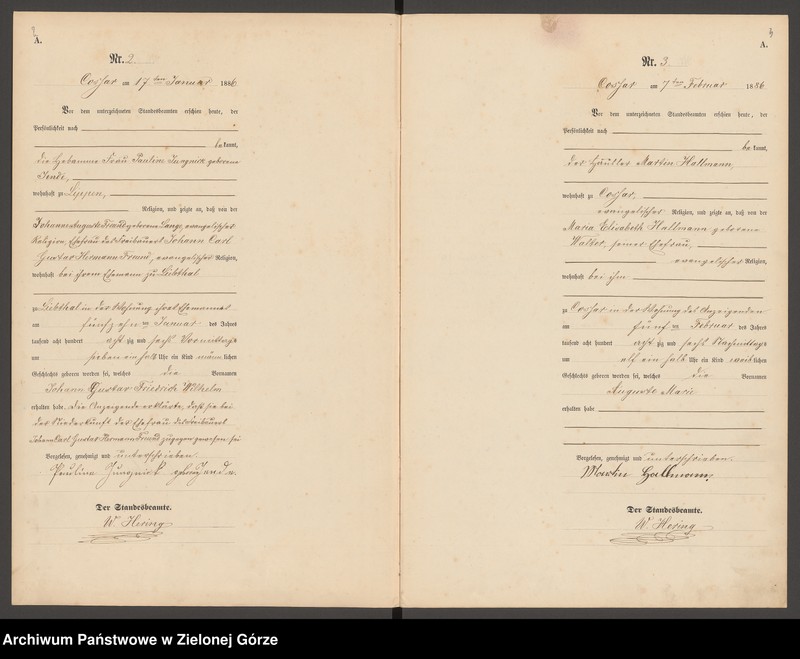 A.
Nr. 2.
Cossar am 17ten Januar 1886
Vor dem unterzeichneten Standesbeamten erschien heute, der
Persönlichkeit nach
bekannt,
die Hebamme Frau Pauline geborene
wohnhaft zu Lippen,
Religion, und zeigte an, daß von der
Johanne Auguste Freund geborene Lange, evangelischer
Religion, Ehefrau des Johann Carl
Gustav Hermann Freund, evangelischer Religion,
wohnhaft bei ihrem Ehemann zu Liebthal
zu Liebthal in der Wohnung ihres Ehemannes
am fünfzehnten Januar des Jahres
tausend acht hundert achtzig und sechs Vormittags
um sieben ein halb Uhr ein Kind männlichen
Geschlechts geboren worden sei, welches die Vornamen
Johann Gustav Friedrich Wilhelm
erhalten habe. Die Anzeigende erklärte, daß sie bei
der Niederkunft der Ehefrau des
Johann Carl Gustav Hermann Freund zugegen gewesen sei
Vorgelesen, genehmigt und unterschrieben.
Pauline
Der Standesbeamte.
W. Hering
3
A.
Nr. 3.
Cossar am 7ten Februar 1886
Vor dem unterzeichneten Standesbeamten erschien heute, der
Persönlichkeit nach
bekannt,
der Häusler Martin Hallmann,
wohnhaft zu Cossar,
evangelischer Religion, und zeigte an, daß von der
Maria Elisabeth Hallmann geborene
Walter, seiner Ehefrau,
evangelischer Religion,
wohnhaft bei ihm
zu Cossar in der Wohnung des Anzeigenden
am fünften Februar des Jahres
tausend acht hundert achtzig und sechs Nachmittags
um elf ein halb Uhr ein Kind weiblichen
Geschlechts geboren worden sei, welches die Vornamen
Auguste Marie
erhalten habe
Vorgelesen, genehmigt und unterschrieben.
Martin Hallmann
Der Standesbeamte.
W. Hering
Archiwum Państwowe w Zielonej Górze